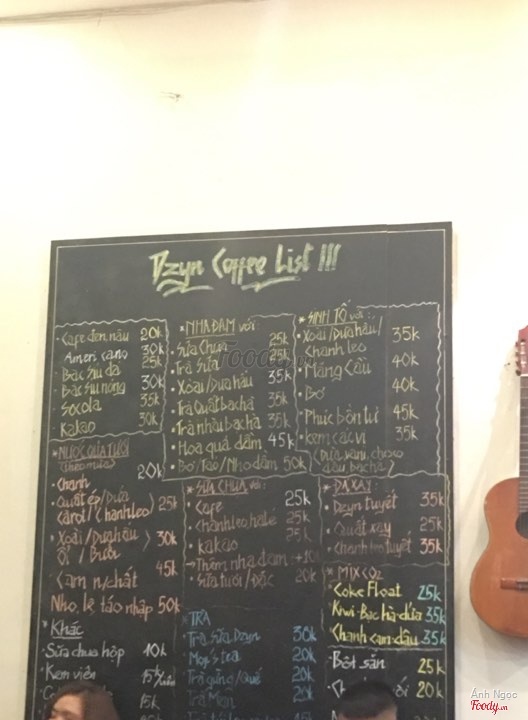 Dzyn Coffee List !!!
Cafe đen, nâu 20k
Americano 30k
Bạc sỉu đá 25k
Bạc sỉu nóng 30k
Socola 35k
Kakao 30k
* NHA ĐAM với:
Sữa Chua 25k
Trà Sữa 25k
Xoài/Dưa hấu 35k
Trà Quất bạc hà 35k
Trà nhài bạc hà 35k
Hoa quả dầm 45k
Bơ/Táo/Nho dầm 50k
* SINH TỐ với:
Xoài/Dưa hấu/
Chanh leo 35k
Mãng Cầu 40k
Bơ 40k
Phúc bồn tử 45k
Kem các vị 35k
(Dừa, vani, choco
dâu, bạc hà)
* NƯỚC QUẢ TƯƠI
(theo mùa)
Chanh 20k
Quất ép/Dứa
Carot/Chanh leo) 25k
Xoài/Dưa hấu
Ổi / Bưởi 30k
Cam n/chất 45k
Nho, lê, táo nhập 50k
* Khác
Sữa chua hộp 10k
Kem viên 15k/viên
15k
* SỮA CHUA với:
Cafe 25k
Chanh leo, hạt é 25k
Kakao 25k
→ Thêm nha đam: +10k
Sữa tươi/Đặc 20k
* TRÀ
Trà sữa Dzyn 30k
Mop's trà 20k
Trà gừng/quế 20k
Trà Mạn 20k
* ĐÁ XAY:
Dzyn tuyết 35k
Quất xay 25k
Chanh leo tuyết 35k
* MIX CO2
Coke Float 25k
Kiwi-Bạc hà-dứa 35k
Chanh cam-dâu 35k
Bột sắn 25k
20k
Foody.vn
Ánh Ngọc
Foody.vn